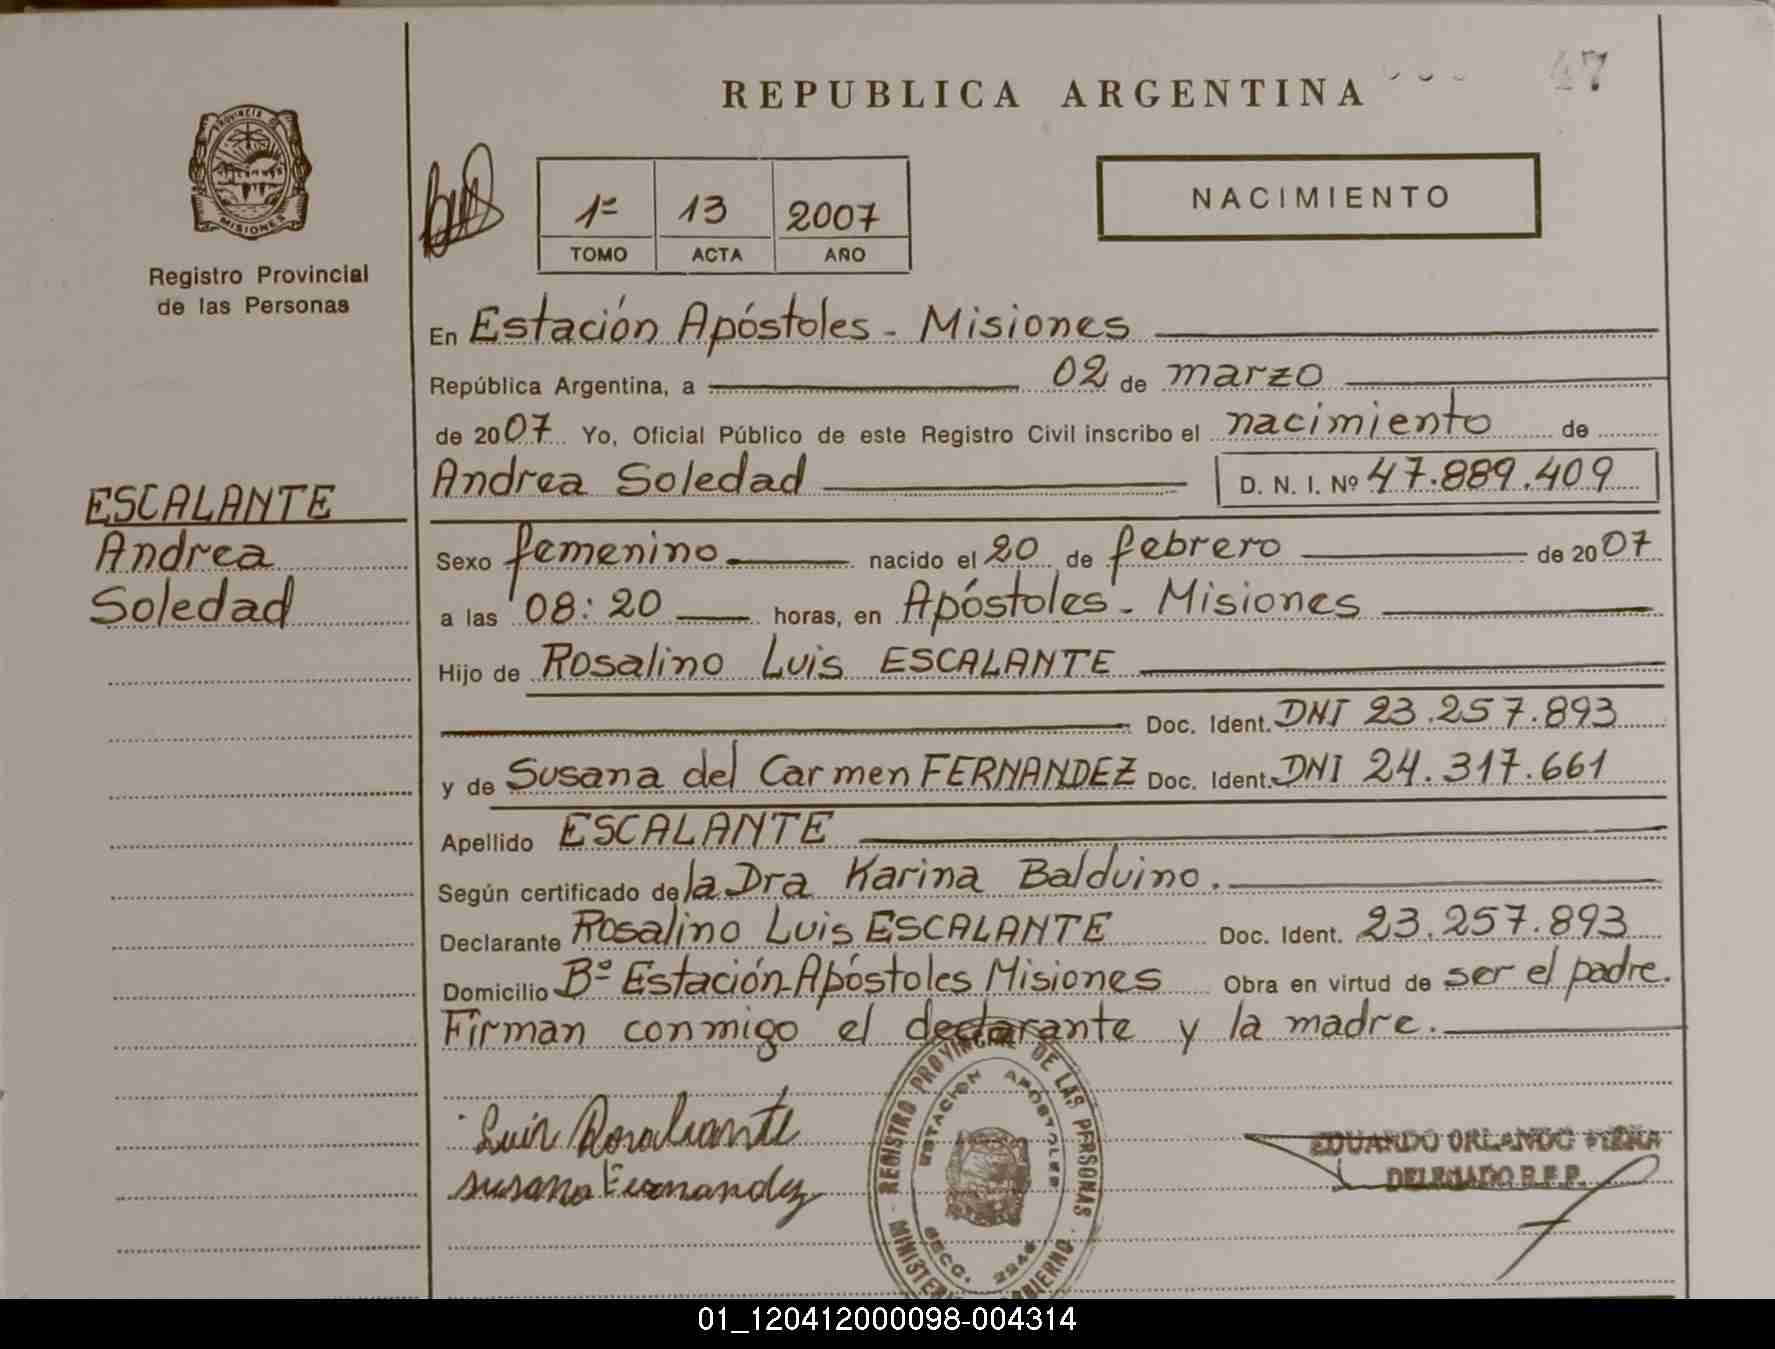 REPUBLICA ARGENTINA
47
PROVINCIA DE
MISIONES
Registro Provincial
de las Personas
1º 13 2007
TOMO ACTA AÑO
NACIMIENTO
En Estación Apóstoles - Misiones
República Argentina, a 02 de marzo
de 2007 Yo, Oficial Público de este Registro Civil inscribo el nacimiento de
Andrea Soledad D. N. I. Nº 47.889.409
ESCALANTE
Andrea
Soledad
Sexo femenino nacido el 20 de febrero de 2007
a las 08:20 horas, en Apóstoles - Misiones
Hijo de Rosalino Luis ESCALANTE
Doc. Ident. DNI 23.257.893
y de Susana del Carmen FERNANDEZ Doc. Ident. DNI 24.317.661
Apellido ESCALANTE
Según certificado de la Dra Karina Balduino.
Declarante Rosalino Luis ESCALANTE Doc. Ident. 23.257.893
Domicilio Bº Estación Apóstoles Misiones Obra en virtud de ser el padre.
Firman conmigo el declarante y la madre.
Luis
Susana Fernandez
REGISTRO PROVINCIAL DE LAS PERSONAS
ESTACION APOSTOLES
SECC. 2246
EDUARDO ORLANDO
DELEGADO R.P.P.
01_120412000098-004314